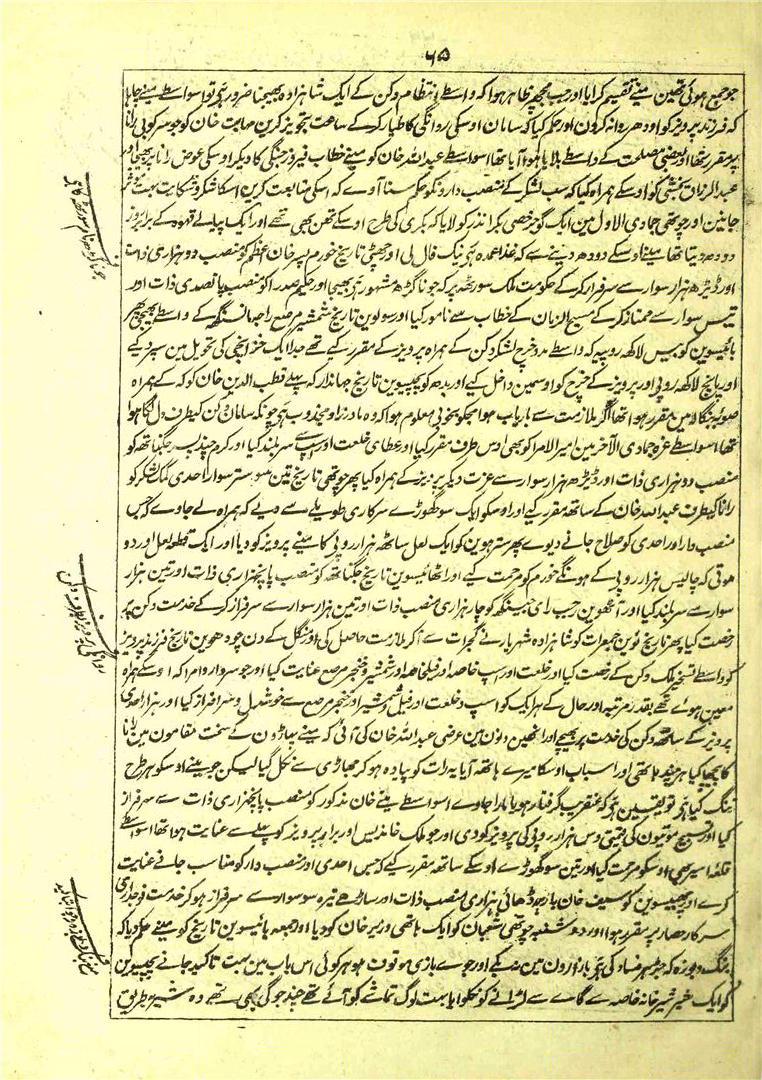 ۶۵
جو جمع ہوئی تھین مینے تقسیم کرایا اور جب مجھپر ظاہر ہوا کہ واسطے انتظام دکن کے ایک شاہزادہ بھیجنا ضرور ہی تو اسواسطے مینے چاہا
کہ فرزند پرویز کو اودھر روانہ کرون اور حکم کیا کہ سامان اوسکی روانگی کا طیار کر کے ساعت تجویز کرین مہابت خان کو جو سرکوبی رانا
پر مقرر تھا اور بعضی مصلحت کے واسطے بلایا ہوا آیا تھا اسواسطے عبداللہ خان کو مینے خطاب فیروز جنگی کا دیکر اوسکی عوض رانا پر بھیجا اور
عبدالرزاق بخشی کو اوسکے ہمراہ کیا کہ سب لشکر کے منصب دارونکو حکم سنا آوے کہ اسکی متابعت کرین اسکا شکر و شکایت بہت موثر
جانین اور چوتھی جمادی الاول مین ایک گوجر خصی بکرا نذر کو لایا کہ بکری کی طرح اوسکے تھن بھی تھے اور ایک پیالے قہوہ کے برابر روز
دودھ دیتا تھا مینے اوسکے دودھ دینے سے کہ غذا عمدہ ہی نیک فال لی اور چھٹی تاریخ خورم پسر خان اعظم کو منصب دو ہزاری ذات
اور ڈیڑھ ہزار سوار سے سرفراز کر کے حکومت ملک سورٹھ پر کہ جونا گڑھ مشہور ہی بھیجا اور حکیم صدرا کو منصب پانصدی ذات اور
تیس سوار سے ممتاز کر کے مسیح الزمان کے خطاب سے نامور کیا اور سولوین تاریخ شمشیر مرصع راجہ مانسنگھ کے واسطے بھیجی پھر
بائیسوین کو بیس لاکھ روپیہ کہ واسطے مدد خرچ لشکر دکن کے ہمراہ پرویز کے مقرر کیے تھے جدا ایک خزانچی کی تحویل مین سپرد کیے
اور پانچ لاکھ روپی اور پرویز کے خرچ کو اوسمین داخل کیے اور بدھ کو پچیسوین تاریخ جہاندار کہ پہلے قطب الدین خان کوکہ کے ہمراہ
صوبہ بنگالہ مین مقرر ہوا تھا آکر ملازمت سے باریاب ہوا مجکو بخوبی معلوم ہوا کہ وہ مادرزاد مجذوب ہی چونکہ سامان دکن کیطرف دل لگا ہوا
تھا اسواسطے غرہ جمادی الآخر مین امیر الامرا کو بھی اوس طرف مقرر کیا اور عطای خلعت اور اسپ سے سربلند کیا اور کرم چند پسر جگناتھ کو
منصب دو ہزاری ذات اور ڈیڑھ ہزار سوار سے عزت دیکر پرویز کے ہمراہ کیا پھر چوتھی تاریخ تین سو ستر سوار احدی کمک لشکر کو
رانا کیطرف عبداللہ خان کے ساتھ مقرر کیے اور اوسکو ایک سو گھوڑے سرکاری طویلے سے دیے کہ ہمراہ لے جاوے کہ جس
منصب دار اور احدی کو صلاح جانے دیوے پھر ستر ہوین کو ایک لعل ساٹھ ہزار روپی کا مینے پرویز کو دیا اور ایک قطعہ لعل اور دو
موتی کہ چالیس ہزار روپی کے ہونگے خورم کو مرحمت کیے اور اٹھائیسوین تاریخ جگناتھ کو منصب پانچہزاری ذات اور تین ہزار
سوار سے سربلند کیا اور آٹھوین رجب رای جیسنگھ کو چار ہزاری منصب ذات اور تین ہزار سوار سے سرفراز کر کے خدمت دکن پر
رخصت کیا پھر تاریخ نوین جمعرات کو شاہزادہ شہریار نے گجرات سے آکر ملازمت حاصل کی اور منگل کے دن چودھوین تاریخ فرزند پرویز
کو واسطے تسخیر ملک دکن کے رخصت کیا اور خلعت اور اسپ خاصہ اور فیل خاصہ اور شمشیر و خنجر مرصع عنایت کیا اور جو سردار و امرا کہ اوسکے ہمراہ
معین ہوے تھے بقدر مرتبہ اور حال کے ہر ایک کو اسپ و خلعت اور فیل و شمشیر اور خنجر مرصع سے خوشدل و سرفراز کیا اور ہزار احدی
پرویز کے ساتھ دکن کی خدمت پر بھیجے اور انھین دنون مین عرضی عبداللہ خان کی آئی کہ مینے پہاڑون کے سخت مقامون مین رانا
کا پیچھا کیا ہر چند ہاتھی اور اسباب اوسکا میرے ہاتھ آیا پر رات کو پیادہ ہو کر جھاڑی سے نکل گیا لیکن جو مینے اوسکو ہر طرح
تنگ کیا ہی تو یقین ہی کہ عنقریب گرفتار ہو یا مارا جاوے اسواسطے مینے خان مذکور کو منصب پانچہزاری ذات سے سرفراز
کیا اور تسبیح موتیون کی قیمتی دس ہزار روپی کی پرویز کو دی اور جو ملک خاندیس اور برار پرویز کو پہلے سے عنایت ہوا تھا اسواسطے
قلعہ اسیر بھی اوسکو مرحمت کیا اور تین سو گھوڑے اوسکے ساتھ مقرر کیے کہ جس احدی اور منصب دار کو مناسب جانے عنایت
کرے اور چھبیسوین کو سیف خان بارہہ ڈھائی ہزاری منصب ذات اور ساڑھے تیرہ سو سوار سے سرفراز ہو کر خدمت فوجداری
سرکار حصار پر مقرر ہوا اور دوشنبہ چوتھی شعبان کو ایک ہاتھی وزیر خان کو دیا اور جمعہ بائیسوین تاریخ کو مینے حکم دیا کہ
بنگ و بوزہ کہ جڑ فساد کی ہی بازارون مین نہ بکے اور جوے بازی موقوف ہو ہر کوئی اس باب مین بہت تاکید جانے پچیسوین
کو ایک شیر شیر خانہ خاصہ سے گاے سے لڑانے کو نکلوایا بہت لوگ تماشے کو آئے تھے چند جوگی بھی تھے وہ شیر بطریق